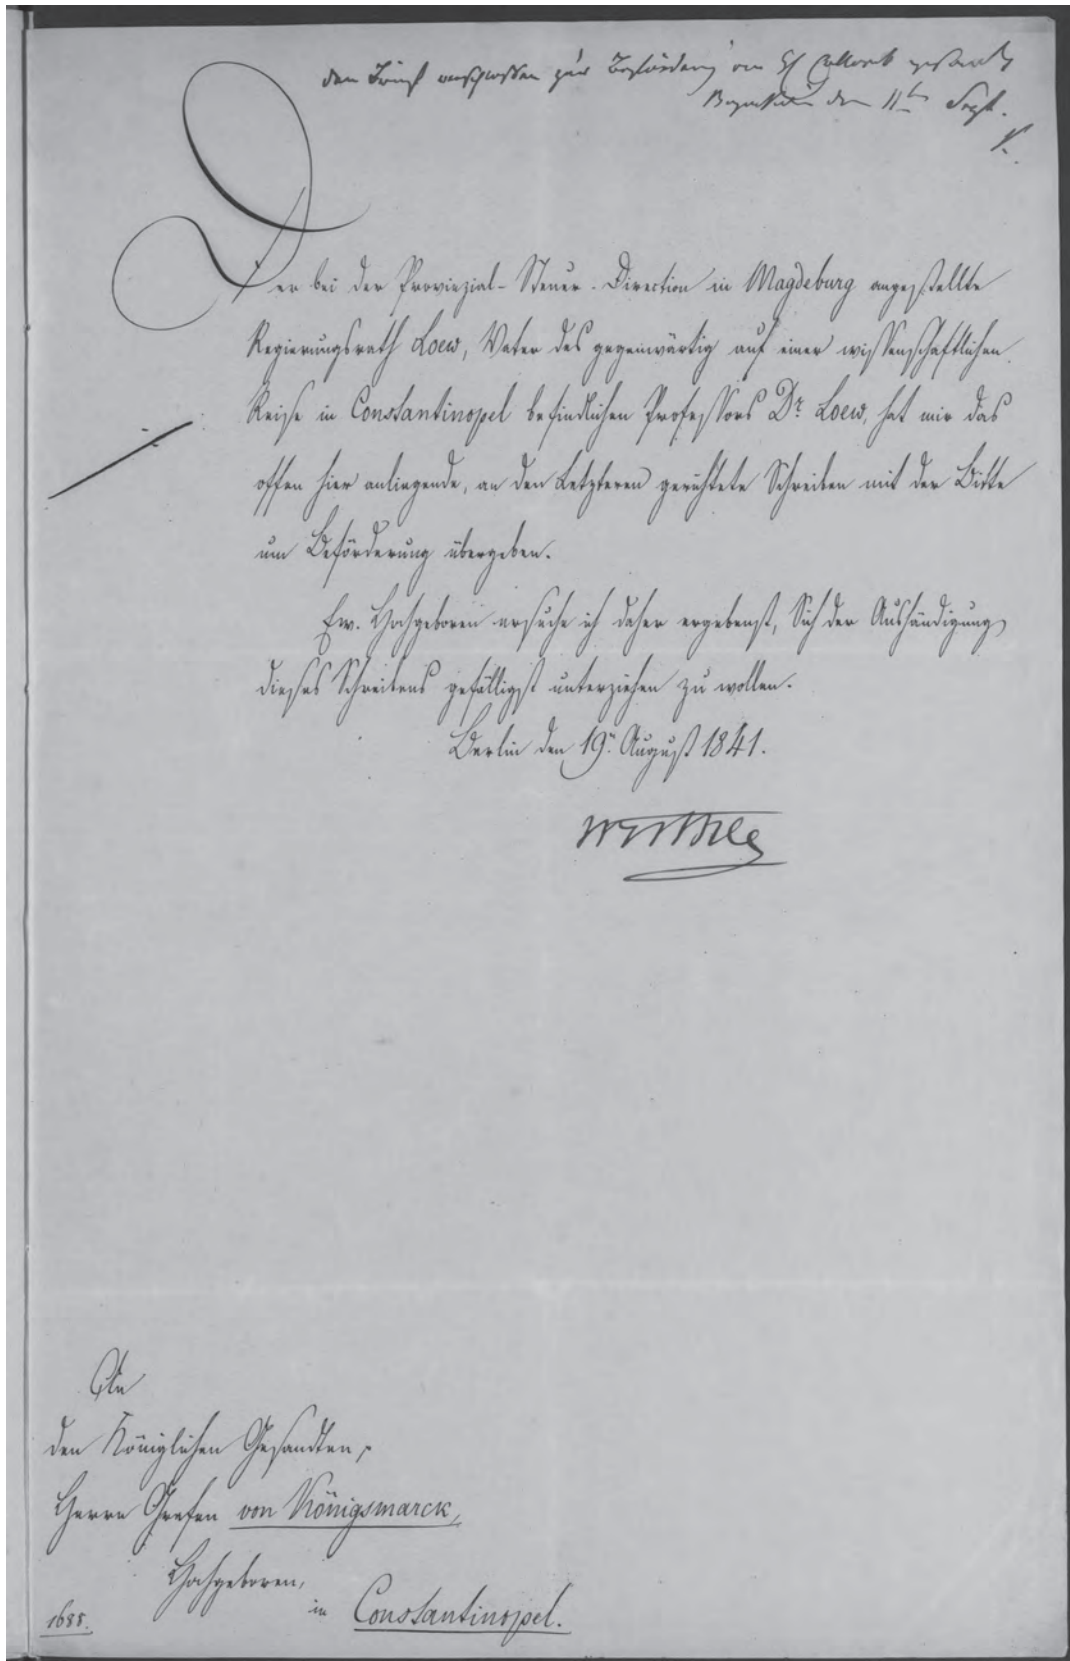 den Brief verschlossen zur Beförderung an gesandt
den 11t Sept.
Der bei der Provinzial-Steuer-Direction in Magdeburg angestellte
Regierungsrath Loew, Vater des gegenwärtig auf einer wissenschaftlichen
Reise in Constantinopel befindlichen Professors Dr. Loew, hat mir das
offen hier anliegende, an den Letzteren gerichtete Schreiben mit der Bitte
um Beförderung übergeben.
Ew. Hochgeboren ersuche ich daher ergebenst, Sich der Aushändigung
dieses Schreibens gefälligst unterziehen zu wollen.
Berlin den 19n. August 1841.
An
den Königlichen Gesandten,
Herrn Grafen von Königsmarck,
Hochgeboren,
in Constantinopel.
1688.